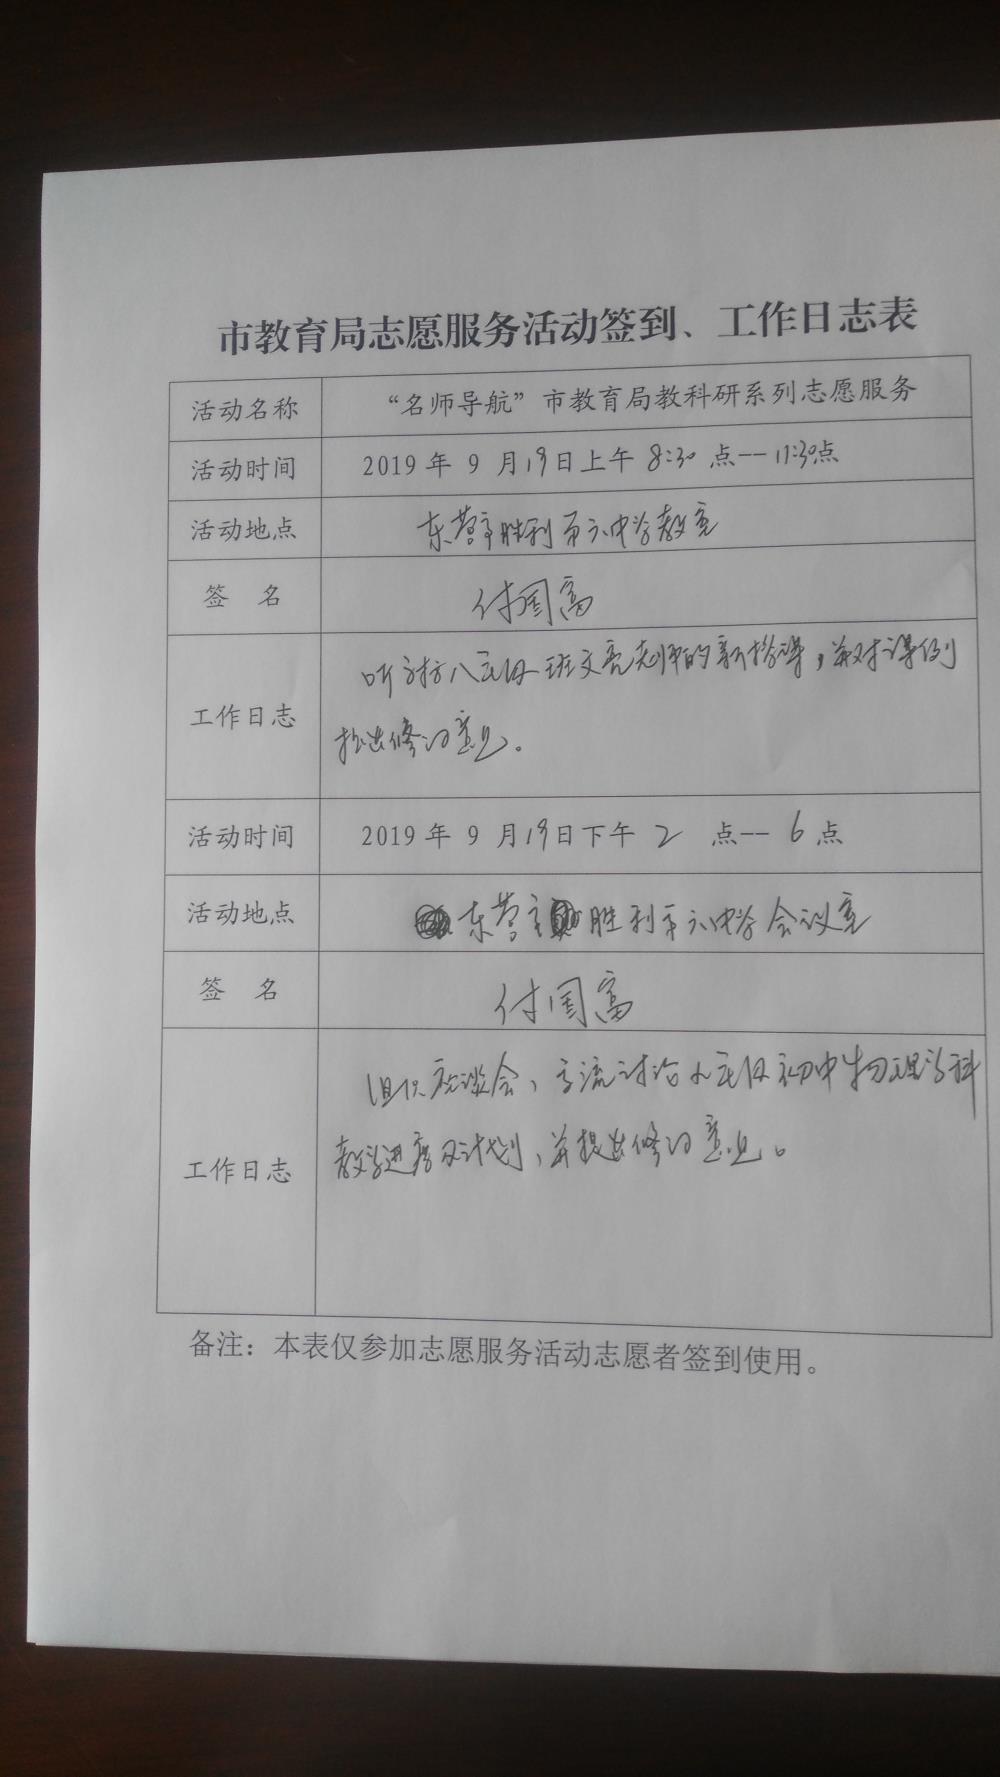 市教育局志愿服务活动签到、工作日志表
活动名称 “名师导航”市教育局教科研系列志愿服务
活动时间 2019 年 9 月19日上午 8:30 点--11:30点
活动地点 东营市胜利第六中学教室
签 名 付国富
工作日志 听 八年级 班文亮老师的新授课,并对课例
提出修订意见。
活动时间 2019 年 9 月19日下午 2 点-- 6 点
活动地点 东营市 胜利第六中学会议室
签 名 付国富
工作日志 组织座谈会、交流讨论八年级初中物理学科
教学进度及计划、并提出修订意见。
备注：本表仅参加志愿服务活动志愿者签到使用。